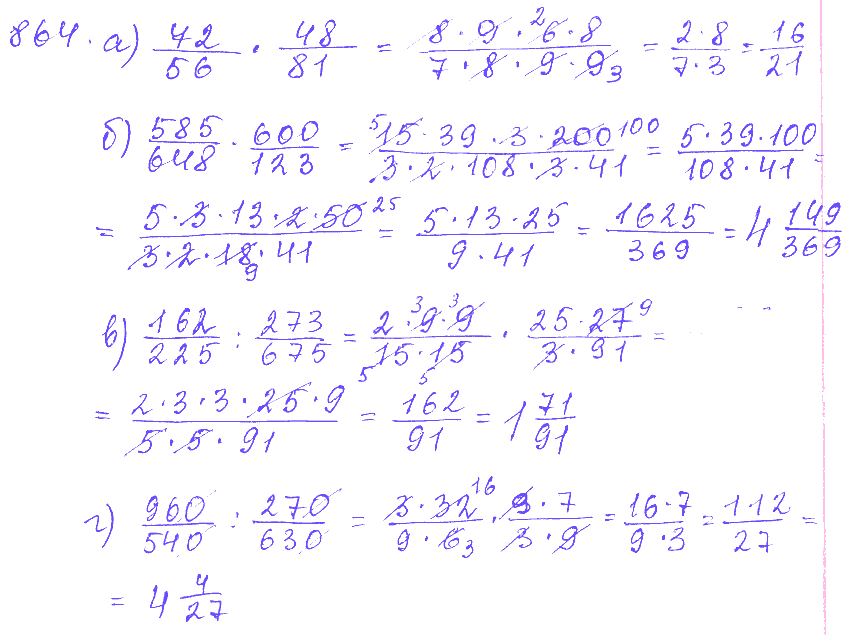 864. а) 72/56 · 48/81 = 8·9·6 2·8/7·8·9·9 3 = 2·8/7·3 = 16/21
б) 585/648 · 600/123 = 15 5·39·3·200 100/3·2·108·3·41 = 5·39·100/108·41 =
= 5·3·13·2·50 25/3·2·18 9·41 = 5·13·25/9·41 = 1625/369 = 4 149/369
в) 162/225 : 273/675 = 2·9 3·9 3/15 5·15 5 · 25·27 9/3·91 =
= 2·3·3·25·9/5·5·91 = 162/91 = 1 71/91
г) 960/540 : 270/630 = 3·32 16/9·6 3 · 9·7/3·9 = 16·7/9·3 = 112/27 =
= 4 4/27